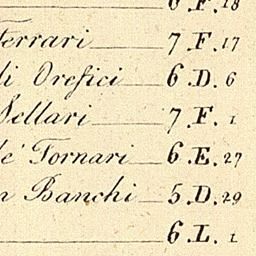 6 .F. 18
Ferrari 7 .F. 17
di Orefici 6 .D. 6
Sellari 7 .F. 1
de' Fornari 6 .E. 27
n Banchi 5 .D. 29
6 .L. 1